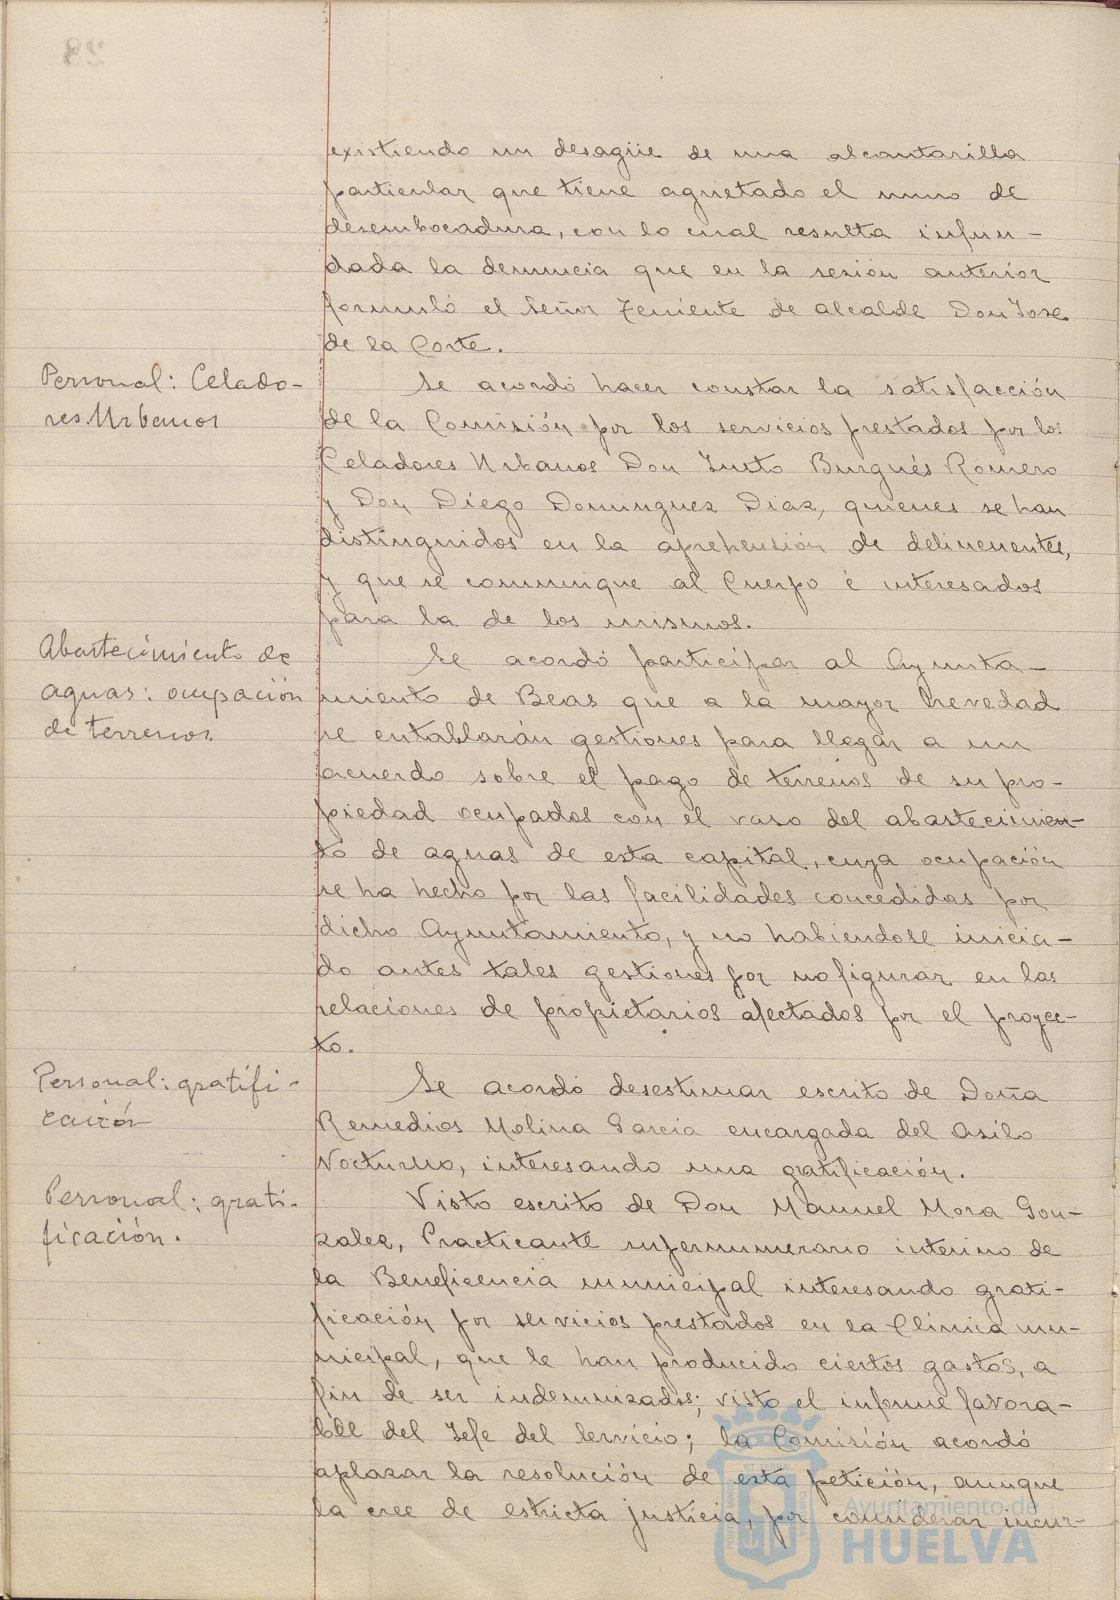 existiendo un desagüe de una alcantarilla
particular que tiene agrietado el muro de
desembocadura, con lo cual resulta infun-
dada la denuncia que en la sesión anterior
formuló el Señor Teniente de alcalde Don Jose
de la Corte.
Personal: Celado-
res Urbanos
Se acordó hacer constar la satisfacción
de la Comisión por los servicios prestados por los
Celadores Urbanos Don Justo Burgués Romero
y Don Diego Dominguez Diaz, quienes se han
distinguidos en la aprehensión de delincuentes,
y que se comunique al Cuerpo é interesados
para la de los mismos.
Abastecimiento de
aguas: ocupación
de terrenos.
Se acordó participar al Ayunta-
miento de Beas que a la mayor brevedad
se entablarán gestiones para llegar a un
acuerdo sobre el pago de terrenos de su pro-
piedad ocupados con el vaso del abastecimien-
to de aguas de esta capital, cuya ocupación
se ha hecho por las facilidades concedidas por
dicho Ayuntamiento, y no habiendose inicia-
do antes tales gestiones por no figurar en las
relaciones de propietarios afectados por el proyec-
to.
Personal: gratifi-
cación
Se acordó desestimar escrito de Doña
Remedios Molina Garcia encargada del Asilo
Nocturno, interesando una gratificación.
Personal: grati-
ficación.
Visto escrito de Don Manuel Mora Gon-
zalez, Practicante supernumerario interino de
la Beneficencia municipal interesando grati-
ficación por servicios prestados en la Clínica mu-
nicipal, que le han producido ciertos gastos, a
fin de ser indemnizados; visto el informe favora-
ble del Jefe del Servicio; la Comisión acordó
aplazar la resolución de esta petición, aunque
la cree de estricta justicia, por considerar incur-
Ayuntamiento de
HUELVA